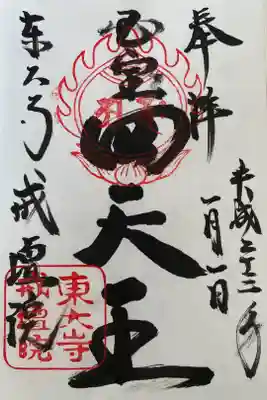 奉拝
平成二十二年
一月一日
国宝四天王
東大寺戒壇院
東大寺
戒壇院